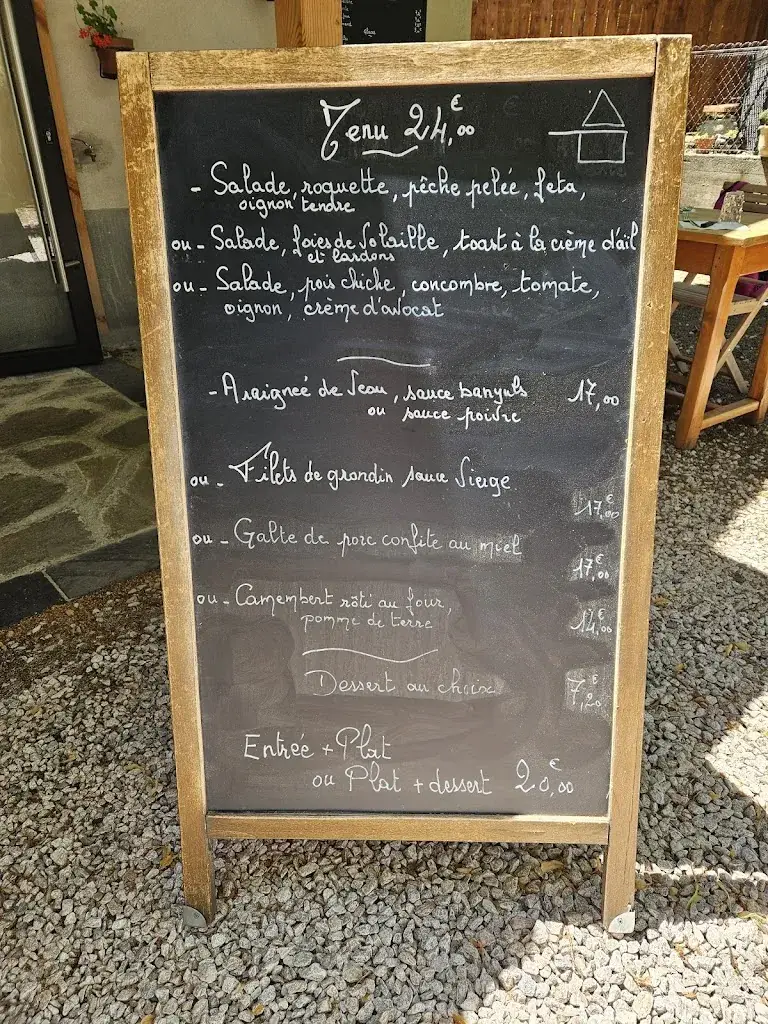 Menu 24,00€
- Salade, roquette, pêche pelée, feta,
oignon tendre
ou - Salade, foies de volaille, toast à la crème d'ail
et lardons
ou - Salade, pois chiche, concombre, tomate,
oignon, crème d'avocat
- Araigneé de veau, sauce banyuls 17,00
ou sauce poivre
ou - Filets de grondin sauce vierge
17,00€
ou - Galte de porc confite au miel
17,00€
ou - Camembert rôti au four,
pomme de terre 14,00€
Dessert au choix 7,20€
Entrée + Plat
ou Plat + dessert 20,00€